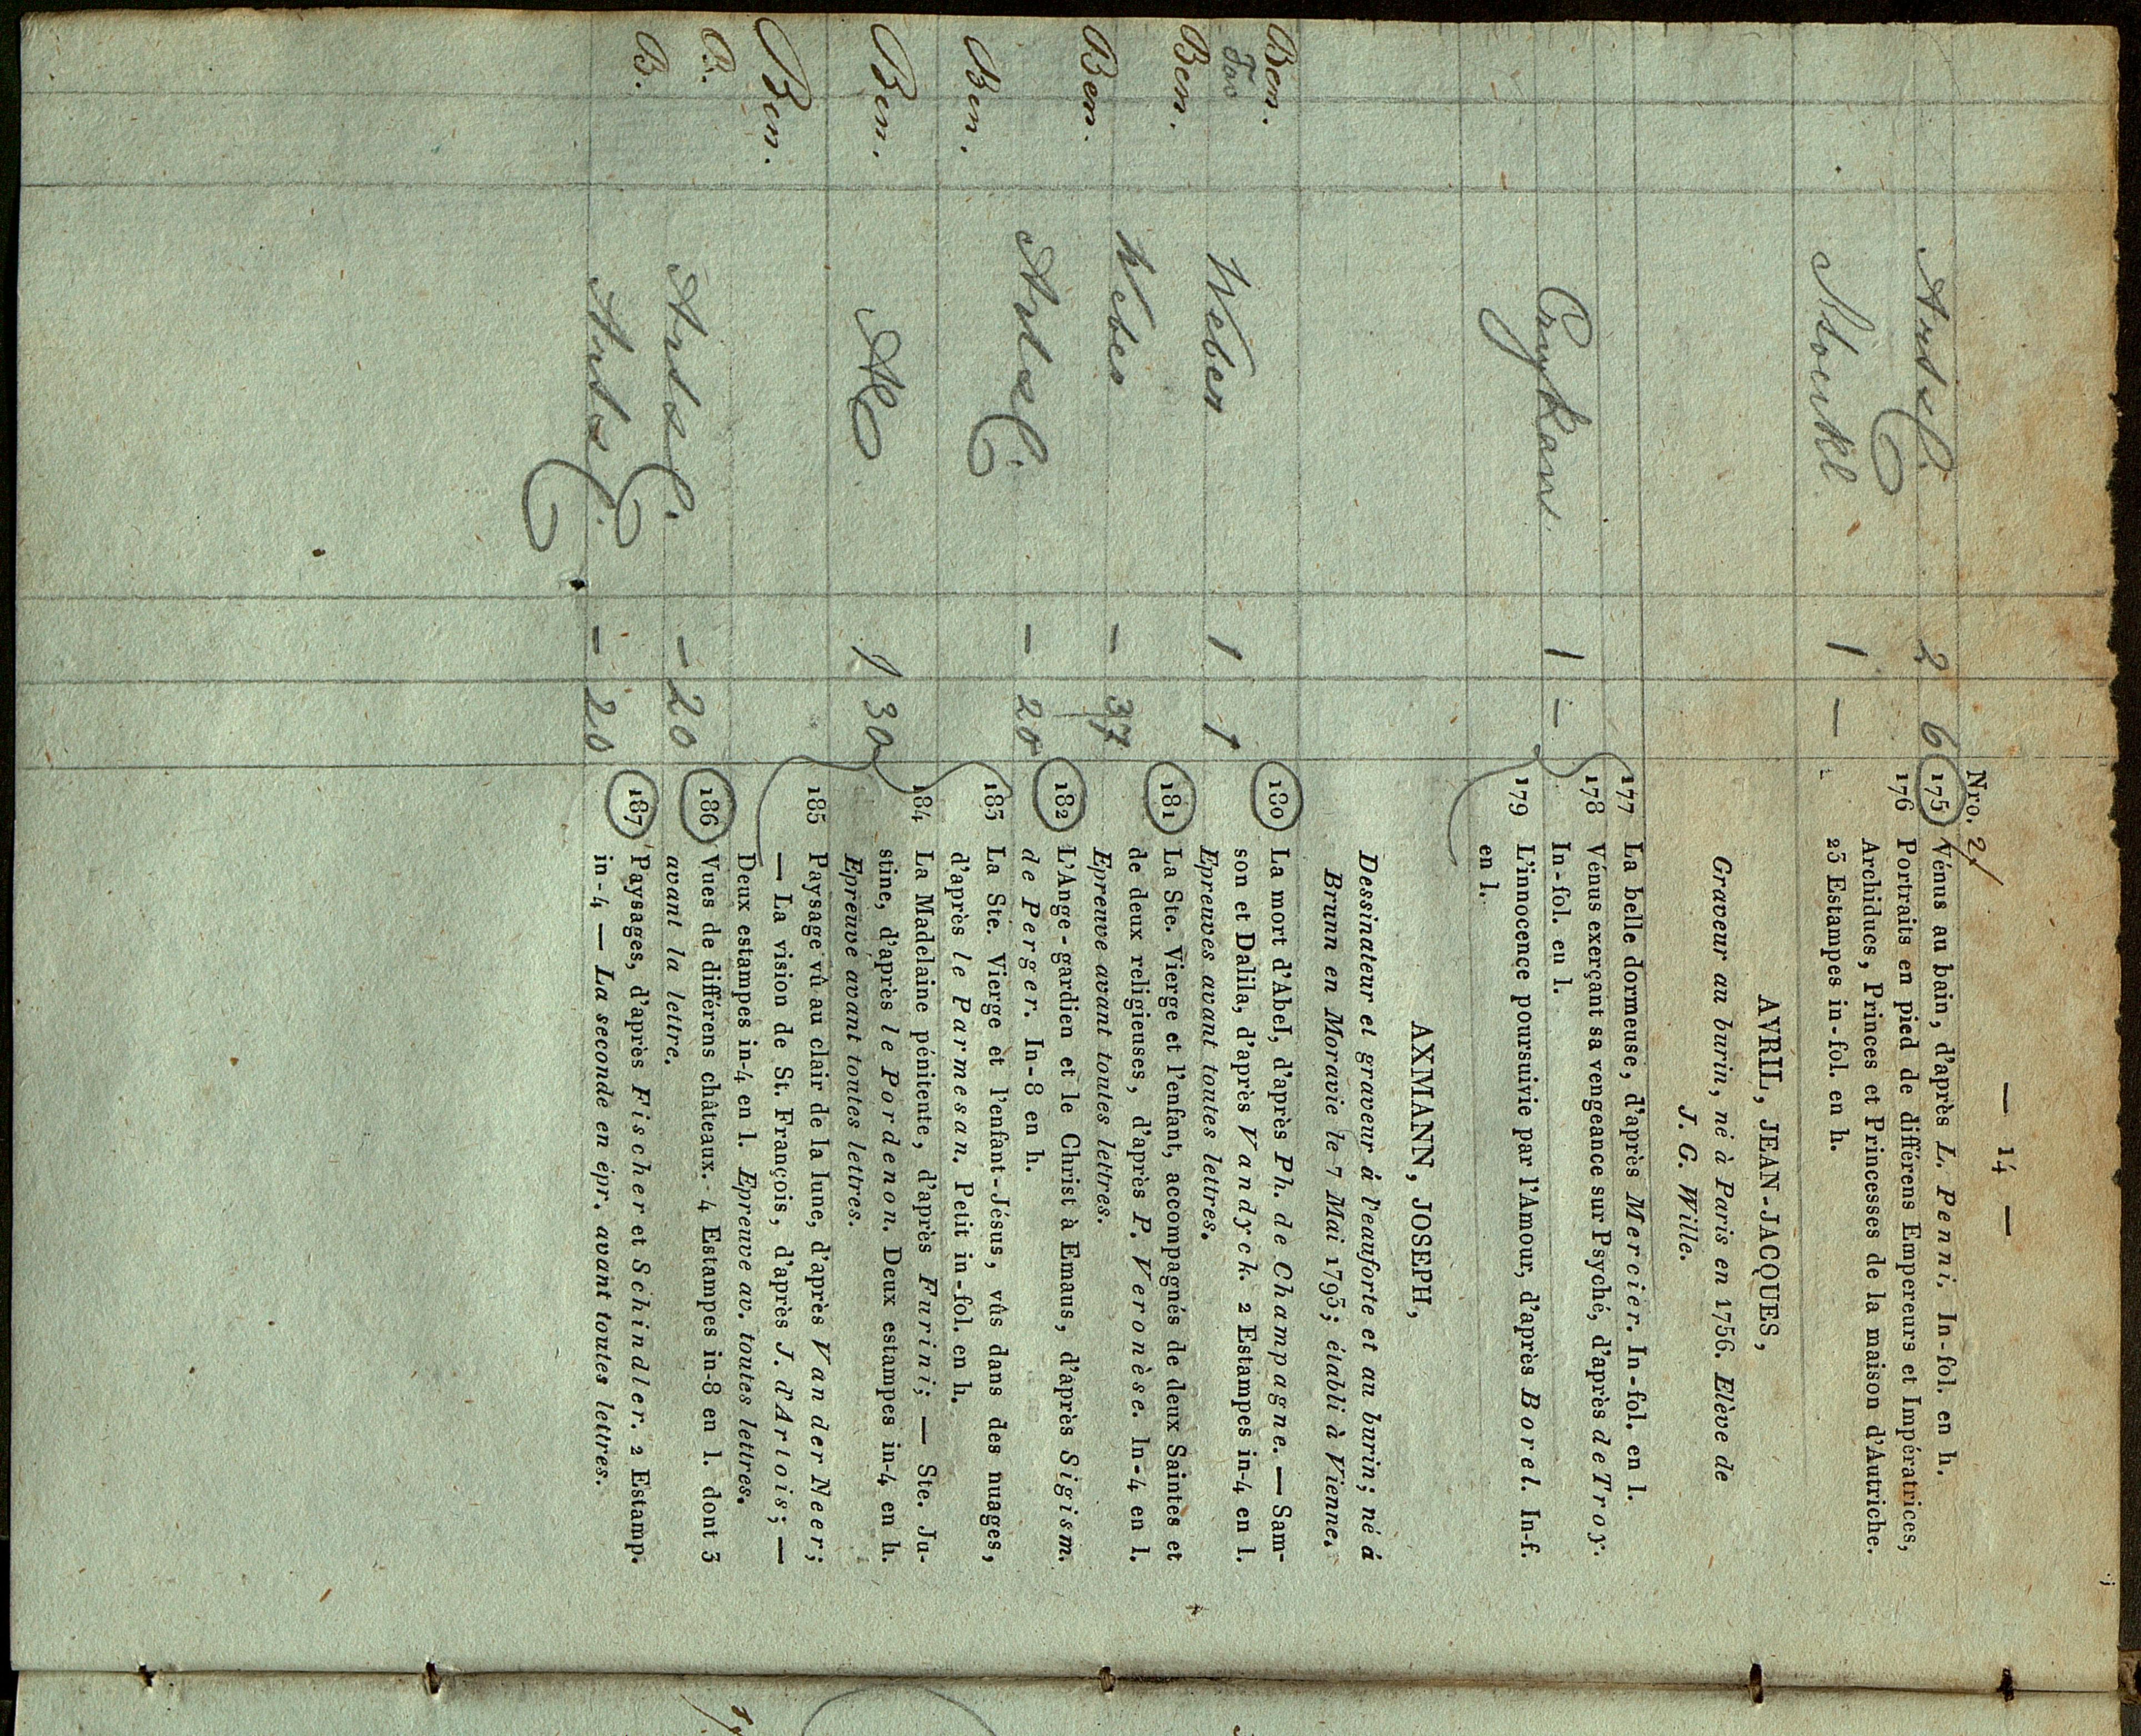 — 14 —
Nro. 2/
Artar. 2 6 175 Vénus au bain, d'après L. Penni. In-fol. en h.
176 Portraits en pied de différens Empereurs et Impératrices,
Archiducs, Princes et Princesses de la maison d'Autriche.
Stöckl 1 — 23 Estampes in-fol. en h.
AVRIL, JEAN-JACQUES,
Graveur au burin, né à Paris en 1756. Elève de
J. G. Wille.
177 La belle dormeuse, d'après Mercier. In-fol. en l.
178 Vénus exerçant sa vengeance sur Psyché, d'après de Troy.
1 — In-fol. en l.
179 L'innocence poursuivie par l'Amour, d'après Borel. In-f.
en l.
AXMANN, JOSEPH,
Dessinateur et graveur à l'eauforte et au burin; né á
Brunn en Moravie le 7 Mai 1793; établi à Vienne.
Ben. 180 La mort d'Abel, d'après Ph. de Champagne. — Sam-
son et Dalila, d'après Vandyck. 2 Estampes in-4 en l.
Weber 1 1 Epreuves avant toutes lettres.
Ben. 181 La Ste. Vierge et l'enfant, accompagnés de deux Saintes et
de deux religieuses, d'après P. Veronèse. In-4 en l.
Weber — 37 Epreuve avant toutes lettres.
Ben. 182 L'Ange-gardien et le Christ à Emaus, d'après Sigism.
— 20 de Perger. In-8 en h.
Ben. 183 La Ste. Vierge et l'enfant-Jésus, vûs dans des nuages,
d'après le Parmesan. Petit in-fol. en h.
184 La Madelaine pénitente, d'après Furini; — Ste. Ju-
Ben. stine, d'après le Pordenon. Deux estampes in-4 en h.
1 30 Epreuve avant toutes lettres.
Ben. 185 Paysage vû au clair de la lune, d'après Van der Neer;
— La vision de St. François, d'après J. d'Artois; —
Deux estampes in-4 en l. Epreuve av. toutes lettres.
B. 186 Vues de différens châteaux. 4 Estampes in-8 en l. dont 3
— 20 avant la lettre.
B. 187 Paysages, d'après Fischer et Schindler. 2 Estamp.
— 20 in-4 — La seconde en épr. avant toutes lettres.